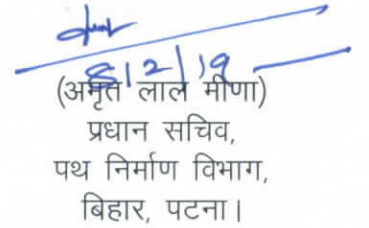 8/2/19
(अमृत लाल मीणा)
प्रधान सचिव,
पथ निर्माण विभाग,
बिहार, पटना।